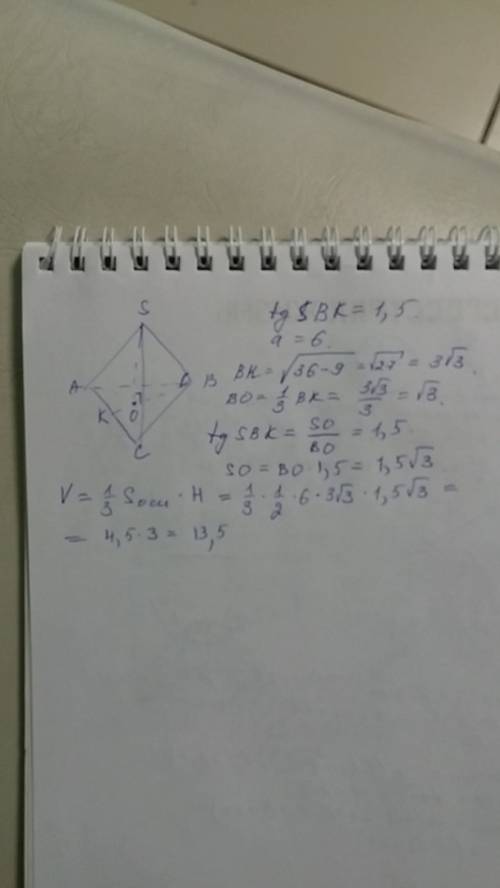 S
A
B
K
O
C
tg SBK = 1,5
a = 6.
BK = √36-9 = √27 = 3√3.
BO = 1/3 BK = 3√3/3 = √3.
tg SBK = SO/BO = 1,5.
SO = BO · 1,5 = 1,5√3
V = 1/3 Sосн · H = 1/3 · 1/2 · 6 · 3√3 · 1,5√3 =
= 4,5 · 3 = 13,5